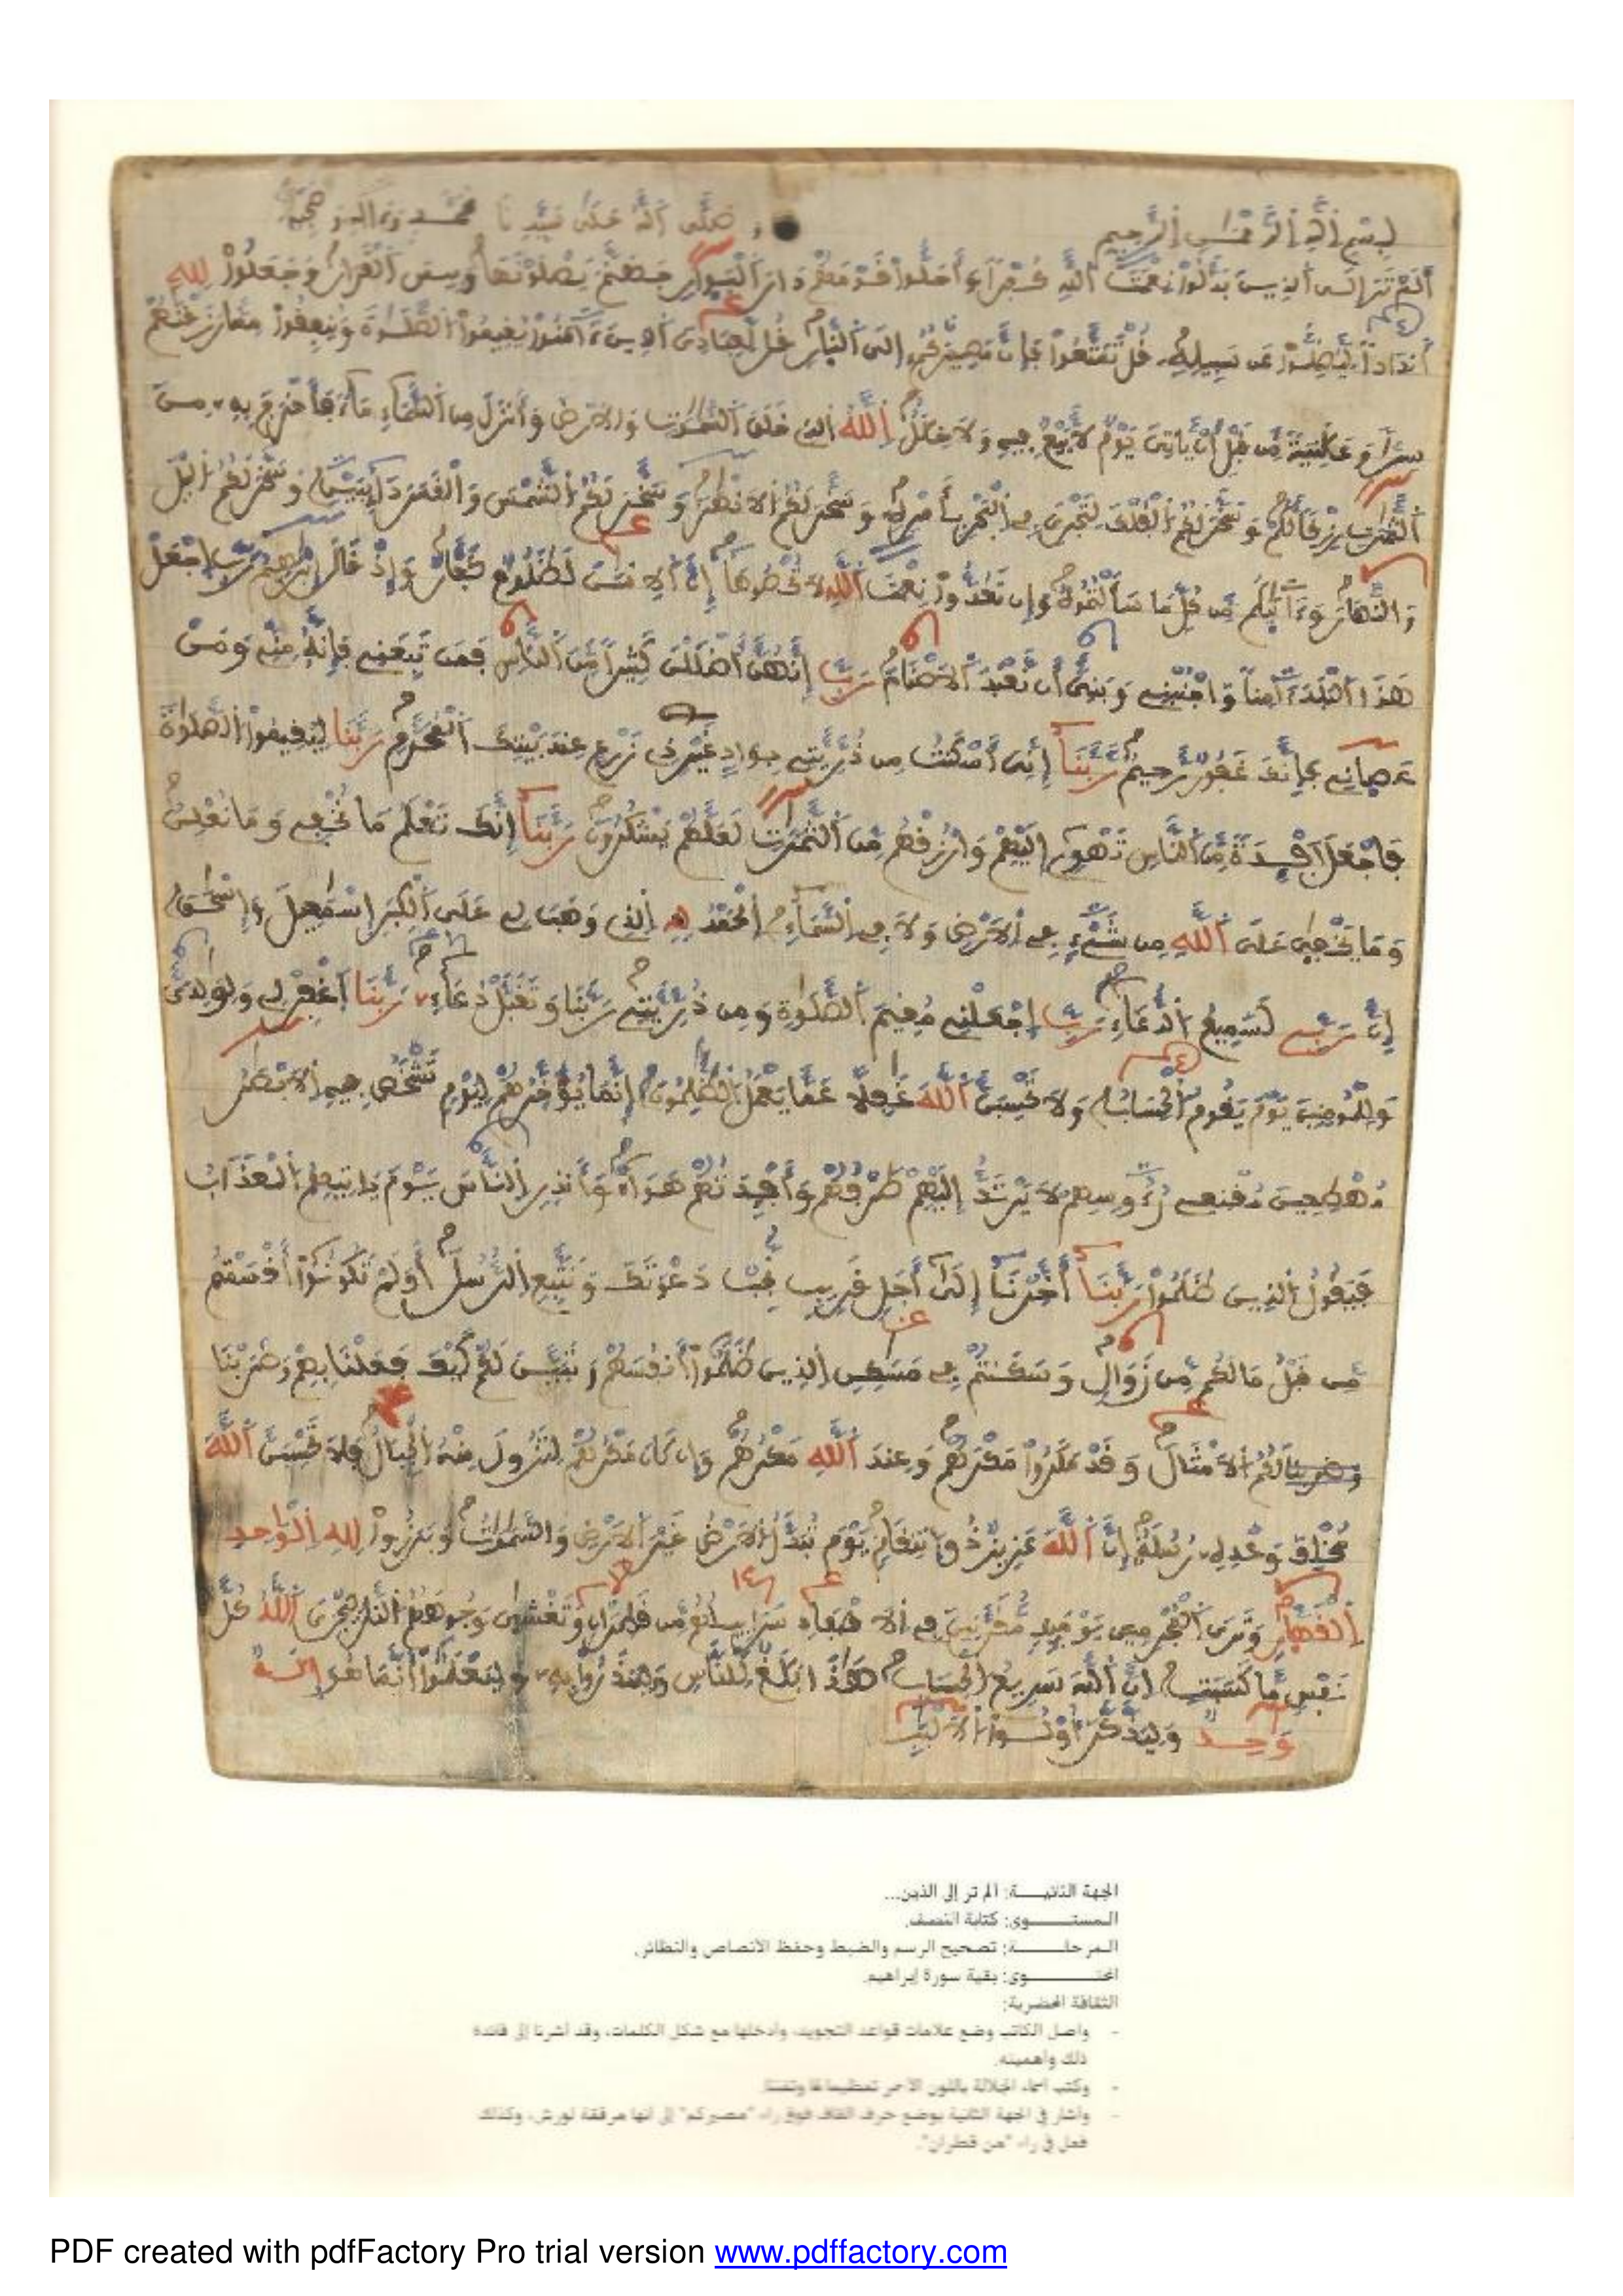 بسم الله الرحمن الرحيم وصلى الله على سيدنا محمد وءاله وصحبه
ألم تر إلى الذين بدلوا نعمت الله كفرا وأحلوا قومهم دار البوار جهنم يصلونها وبيس القرار وجعلوا لله
أندادا ليضلوا عن سبيله قل تمتعوا فإن مصيركم إلى النار قل لعبادي الذين ءامنوا يقيموا الصلوة وينفقوا مما رزقنهم
سرا وعلنية من قبل أن ياتي يوم لا بيع فيه ولا خلل الله الذي خلق السموت والارض وأنزل من السماء ماء فأخرج به من
الثمرت رزقا لكم وسخر لكم الفلك لتجري في البحر بأمره وسخر لكم الانهر وسخر لكم الشمس والقمر دايبين وسخر لكم اليل
والنهار وءاتيكم من كل ما سألتموه وإن تعدوا نعمت الله لا تحصوها إن الانسن لظلوم كفار وإذ قال إبرهيم رب اجعل
هذا البلد ءامنا واجنبني وبني أن نعبد الاصنام رب إنهن أضللن كثيرا من الناس فمن تبعني فإنه مني ومن
عصاني فإنك غفور رحيم ربنا إني أسكنت من ذريتي بواد غير ذي زرع عند بيتك المحرم ربنا ليقيموا الصلوة
فاجعل أفيدة من الناس تهوي إليهم وارزقهم من الثمرت لعلهم يشكرون ربنا إنك تعلم ما نخفي وما نعلن
وما يخفى على الله من شيء في الارض ولا في السماء الحمد لله الذي وهب لي على الكبر إسمعيل وإسحق
إن ربي لسميع الدعاء رب اجعلني مقيم الصلوة ومن ذريتي ربنا وتقبل دعاء ربنا اغفر لي ولولدي
وللمومنين يوم يقوم الحساب ولا تحسبن الله غفلا عما يعمل الظلمون إنما يؤخرهم ليوم تشخص فيه الابصر
مهطعين مقنعي رءوسهم لا يرتد إليهم طرفهم وأفيدتهم هواء وأنذر الناس يوم ياتيهم العذاب
فيقول الذين ظلموا ربنا أخرنا إلى أجل قريب نجب دعوتك ونتبع الرسل أولم تكونوا أقسمتم
من قبل ما لكم من زوال وسكنتم في مسكن الذين ظلموا أنفسهم وتبين لكم كيف فعلنا بهم وضربنا
وضربنا لكم الامثال وقد مكروا مكرهم وعند الله مكرهم وإن كان مكرهم لتزول منه الجبال فلا تحسبن الله
مخلف وعده رسله إن الله عزيز ذو انتقام يوم تبدل الارض غير الارض والسموت وبرزوا لله الواحد
القهار وترى المجرمين يوميذ مقرنين في الاصفاد سرابيلهم من قطران وتغشى وجوههم النار ليجزي الله كل
نفس ما كسبت إن الله سريع الحساب هذا بلغ للناس ولينذروا به وليعلموا أنما هو إله
وحد وليذكر أولوا الالبب
الجهة الثانيـــة: ألم تر إلى الذين...
المستـــوى: كتابة النصف.
المرحلـــة: تصحيح الرسم والضبط وحفظ الأنصاص والنظائر.
المحتـــوى: بقية سورة إبراهيم.
الثقافة الحضرية:
- واصل الكاتب وضع علامات قواعد التجويد، وأدخلها مع شكل الكلمات، وقد أشرنا إلى فائدة
ذلك وأهميته.
- وكتب أسماء الجلالة باللون الأحمر تعظيما لها وتفننا.
- وأشار في الجهة الثانية بوضع حرف القاف فوق راء "مصيركم" إلى أنها مرققة لورش، وكذلك
فعل في راء "من قطران".
PDF created with pdfFactory Pro trial version www.pdffactory.com